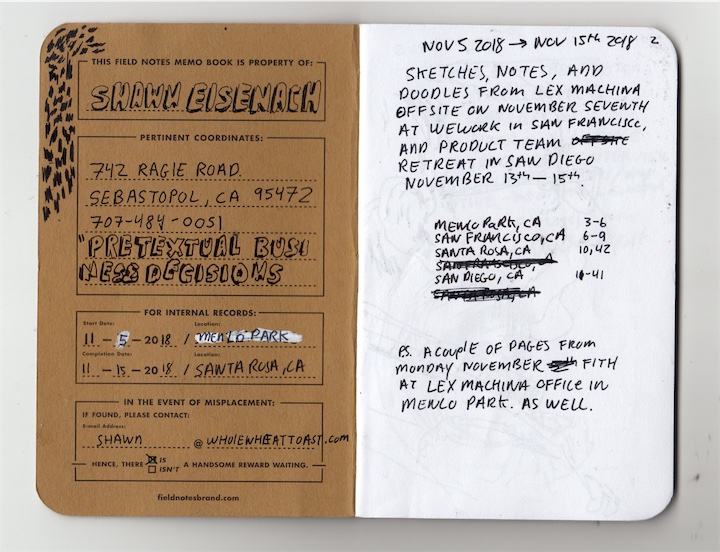 THIS FIELD NOTES MEMO BOOK IS PROPERTY OF:
SHAWN EISENACH
PERTINENT COORDINATES:
742 RAGLE ROAD.
SEBASTOPOL, CA 95472
707-484-0051
"PRETEXTUAL BUSI
NESS DECISIONS
FOR INTERNAL RECORDS:
Start Date: Location:
11 - 5 - 2018 / MENLO PARK
Completion Date: Location:
11 - 15 - 2018 / SANTA ROSA, CA
IN THE EVENT OF MISPLACEMENT:
IF FOUND, PLEASE CONTACT:
E-mail Address:
SHAWN @ WHOLEWHEATTOAST.com
HENCE, THERE IS ISN'T A HANDSOME REWARD WAITING.
fieldnotesbrand.com
NOV 5 2018 → NOV 15th 2018 2
SKETCHES, NOTES, AND
DOODLES FROM LEX MACHINA
OFFSITE ON NOVEMBER SEVENTH
AT WEWORK IN SAN FRANCISCO,
AND PRODUCT TEAM OFFSITE
RETREAT IN SAN DIEGO
NOVEMBER 13th - 15th.
MENLO PARK, CA 3-6
SAN FRANCISCO, CA 6-9
SANTA ROSA, CA 10, 42
SAN DIEGO, CA 11-41
SANTA ROSA, CA
PS. A COUPLE OF PAGES FROM
MONDAY NOVEMBER FITH
AT LEX MACHINA OFFICE IN
MENLO PARK. AS WELL.